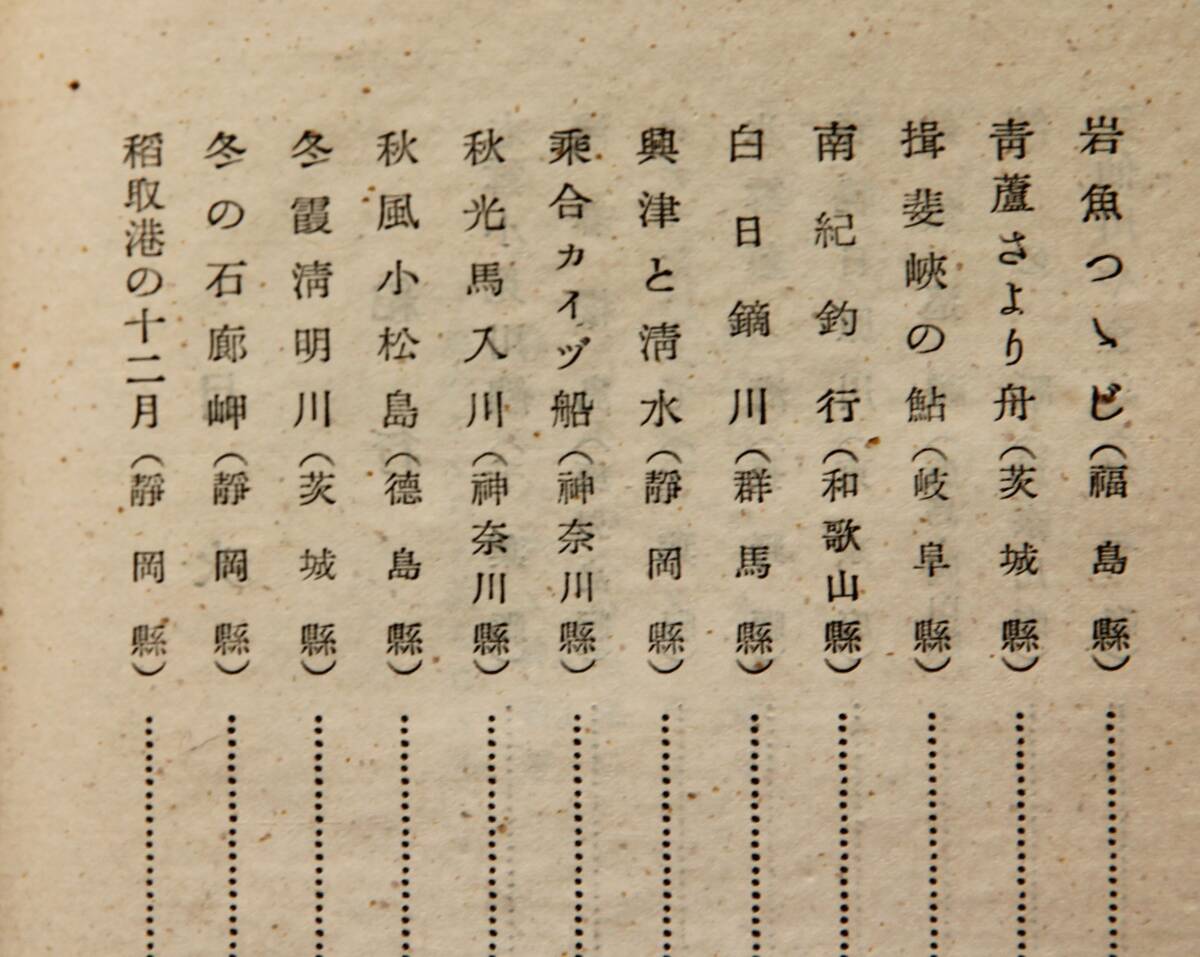 岩魚つゝじ（福島縣）
靑蘆さより舟（茨城縣）
揖斐峽の鮎（岐阜縣）
南紀釣行（和歌山縣）
白日鏑川（群馬縣）
興津と淸水（靜岡縣）
乘合カイヅ船（神奈川縣）
秋光馬入川（神奈川縣）
秋風小松島（德島縣）
冬霞淸明川（茨城縣）
冬の石廊岬（靜岡縣）
稻取港の十二月（靜岡縣）